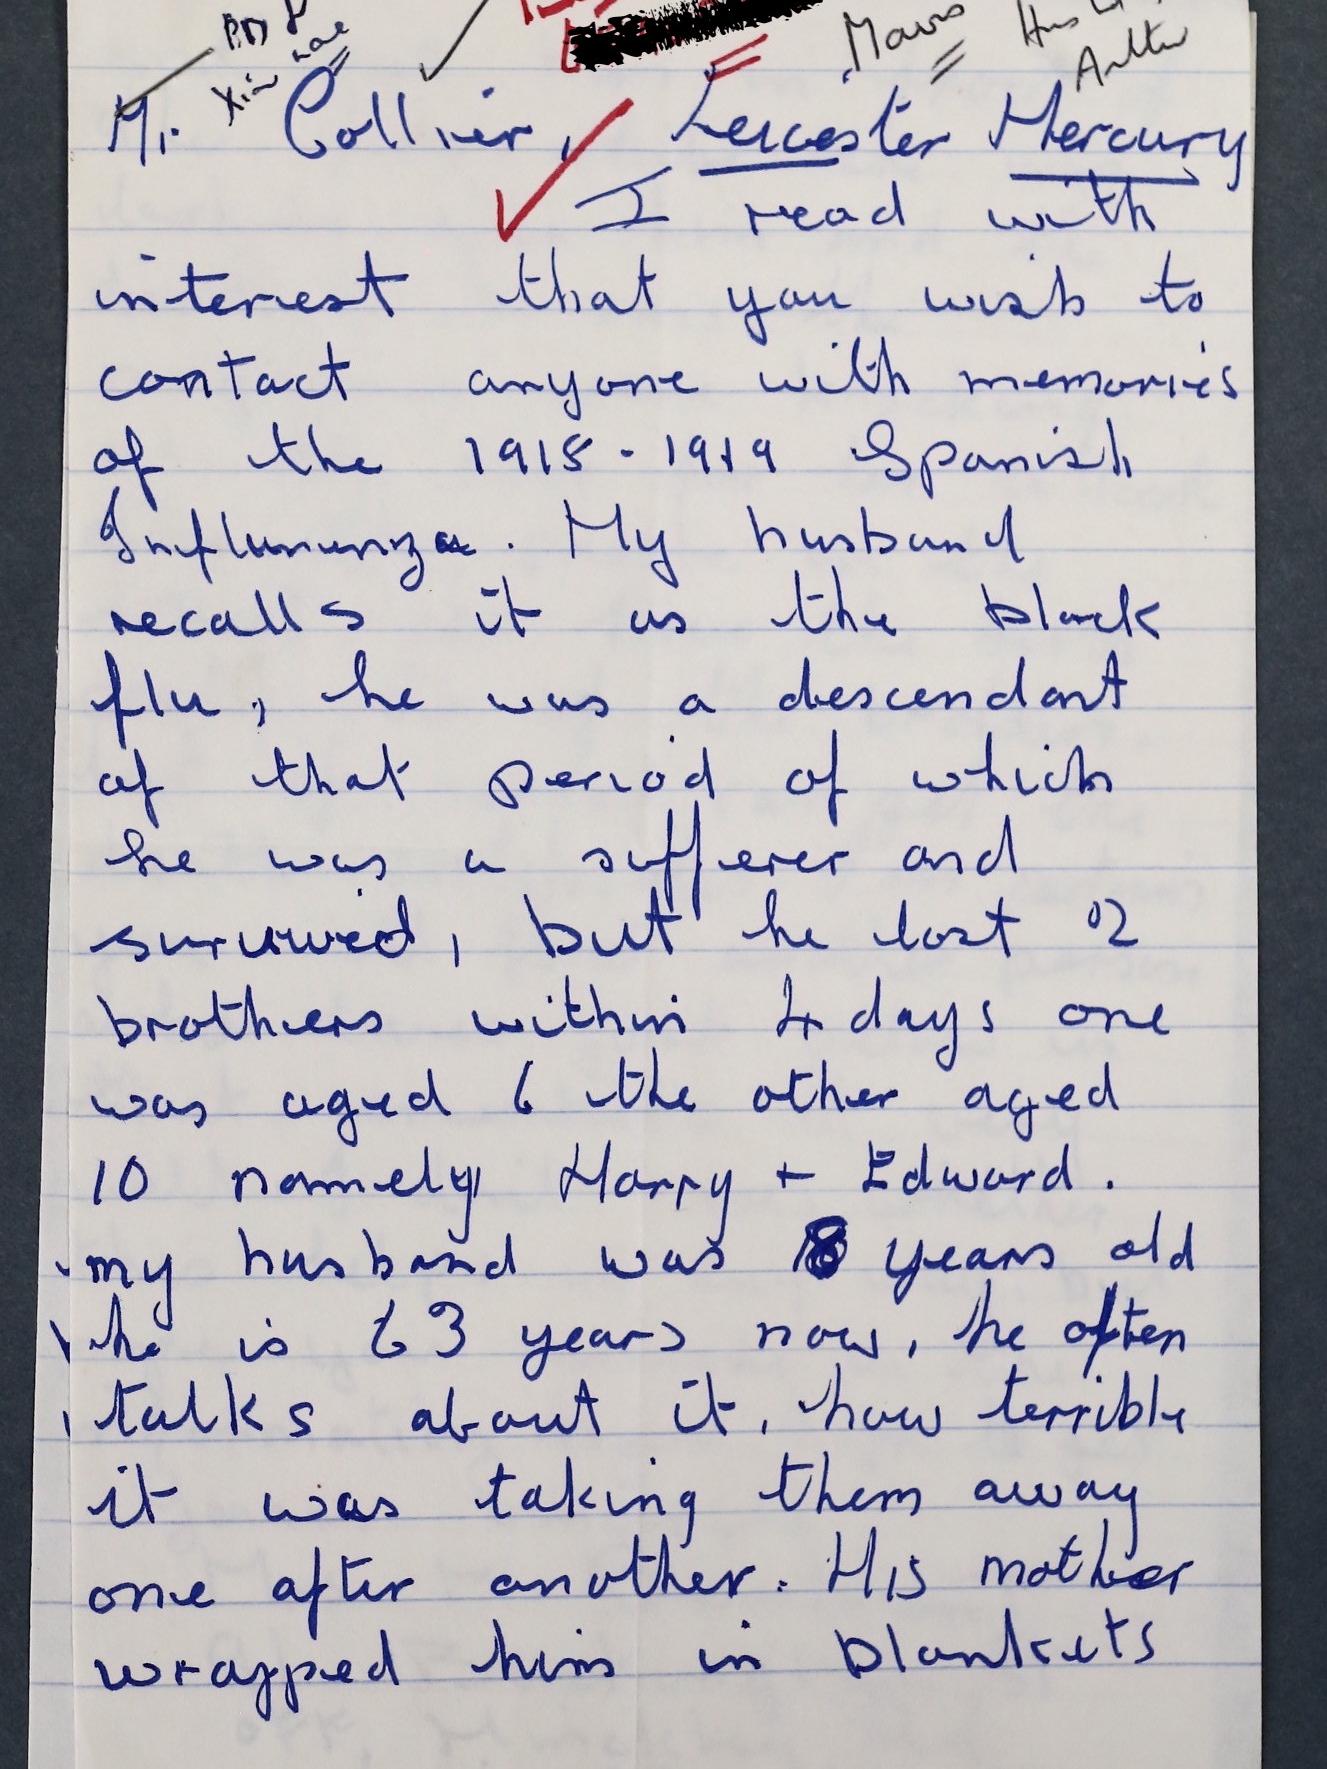 Mr. Collier, Leicester Mercury
I read with
interest that you wish to
contact anyone with memories
of the 1918-1919 Spanish
Inflununza. My husband
recalls it as the black
flu, he was a descendant
of that period of which
he was a sufferer and
survived, but he lost 2
brothers within 4 days one
was aged 6 the other aged
10 namely Harry + Edward.
my husband was 8 years old
he is 63 years now, he often
talks about it, how terrible
it was taking them away
one after another. His mother
wrapped him in blankets